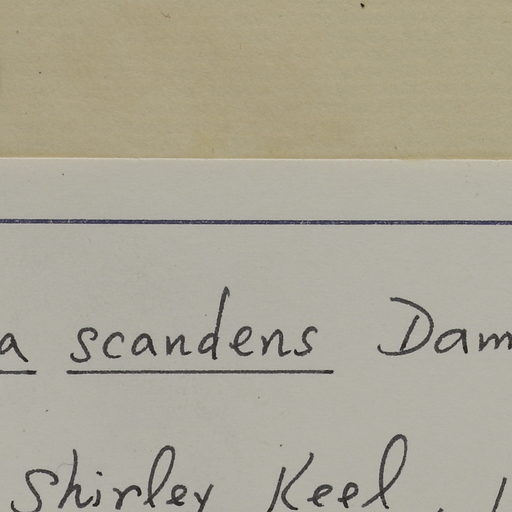 a scandens Dam
Shirley Keel,